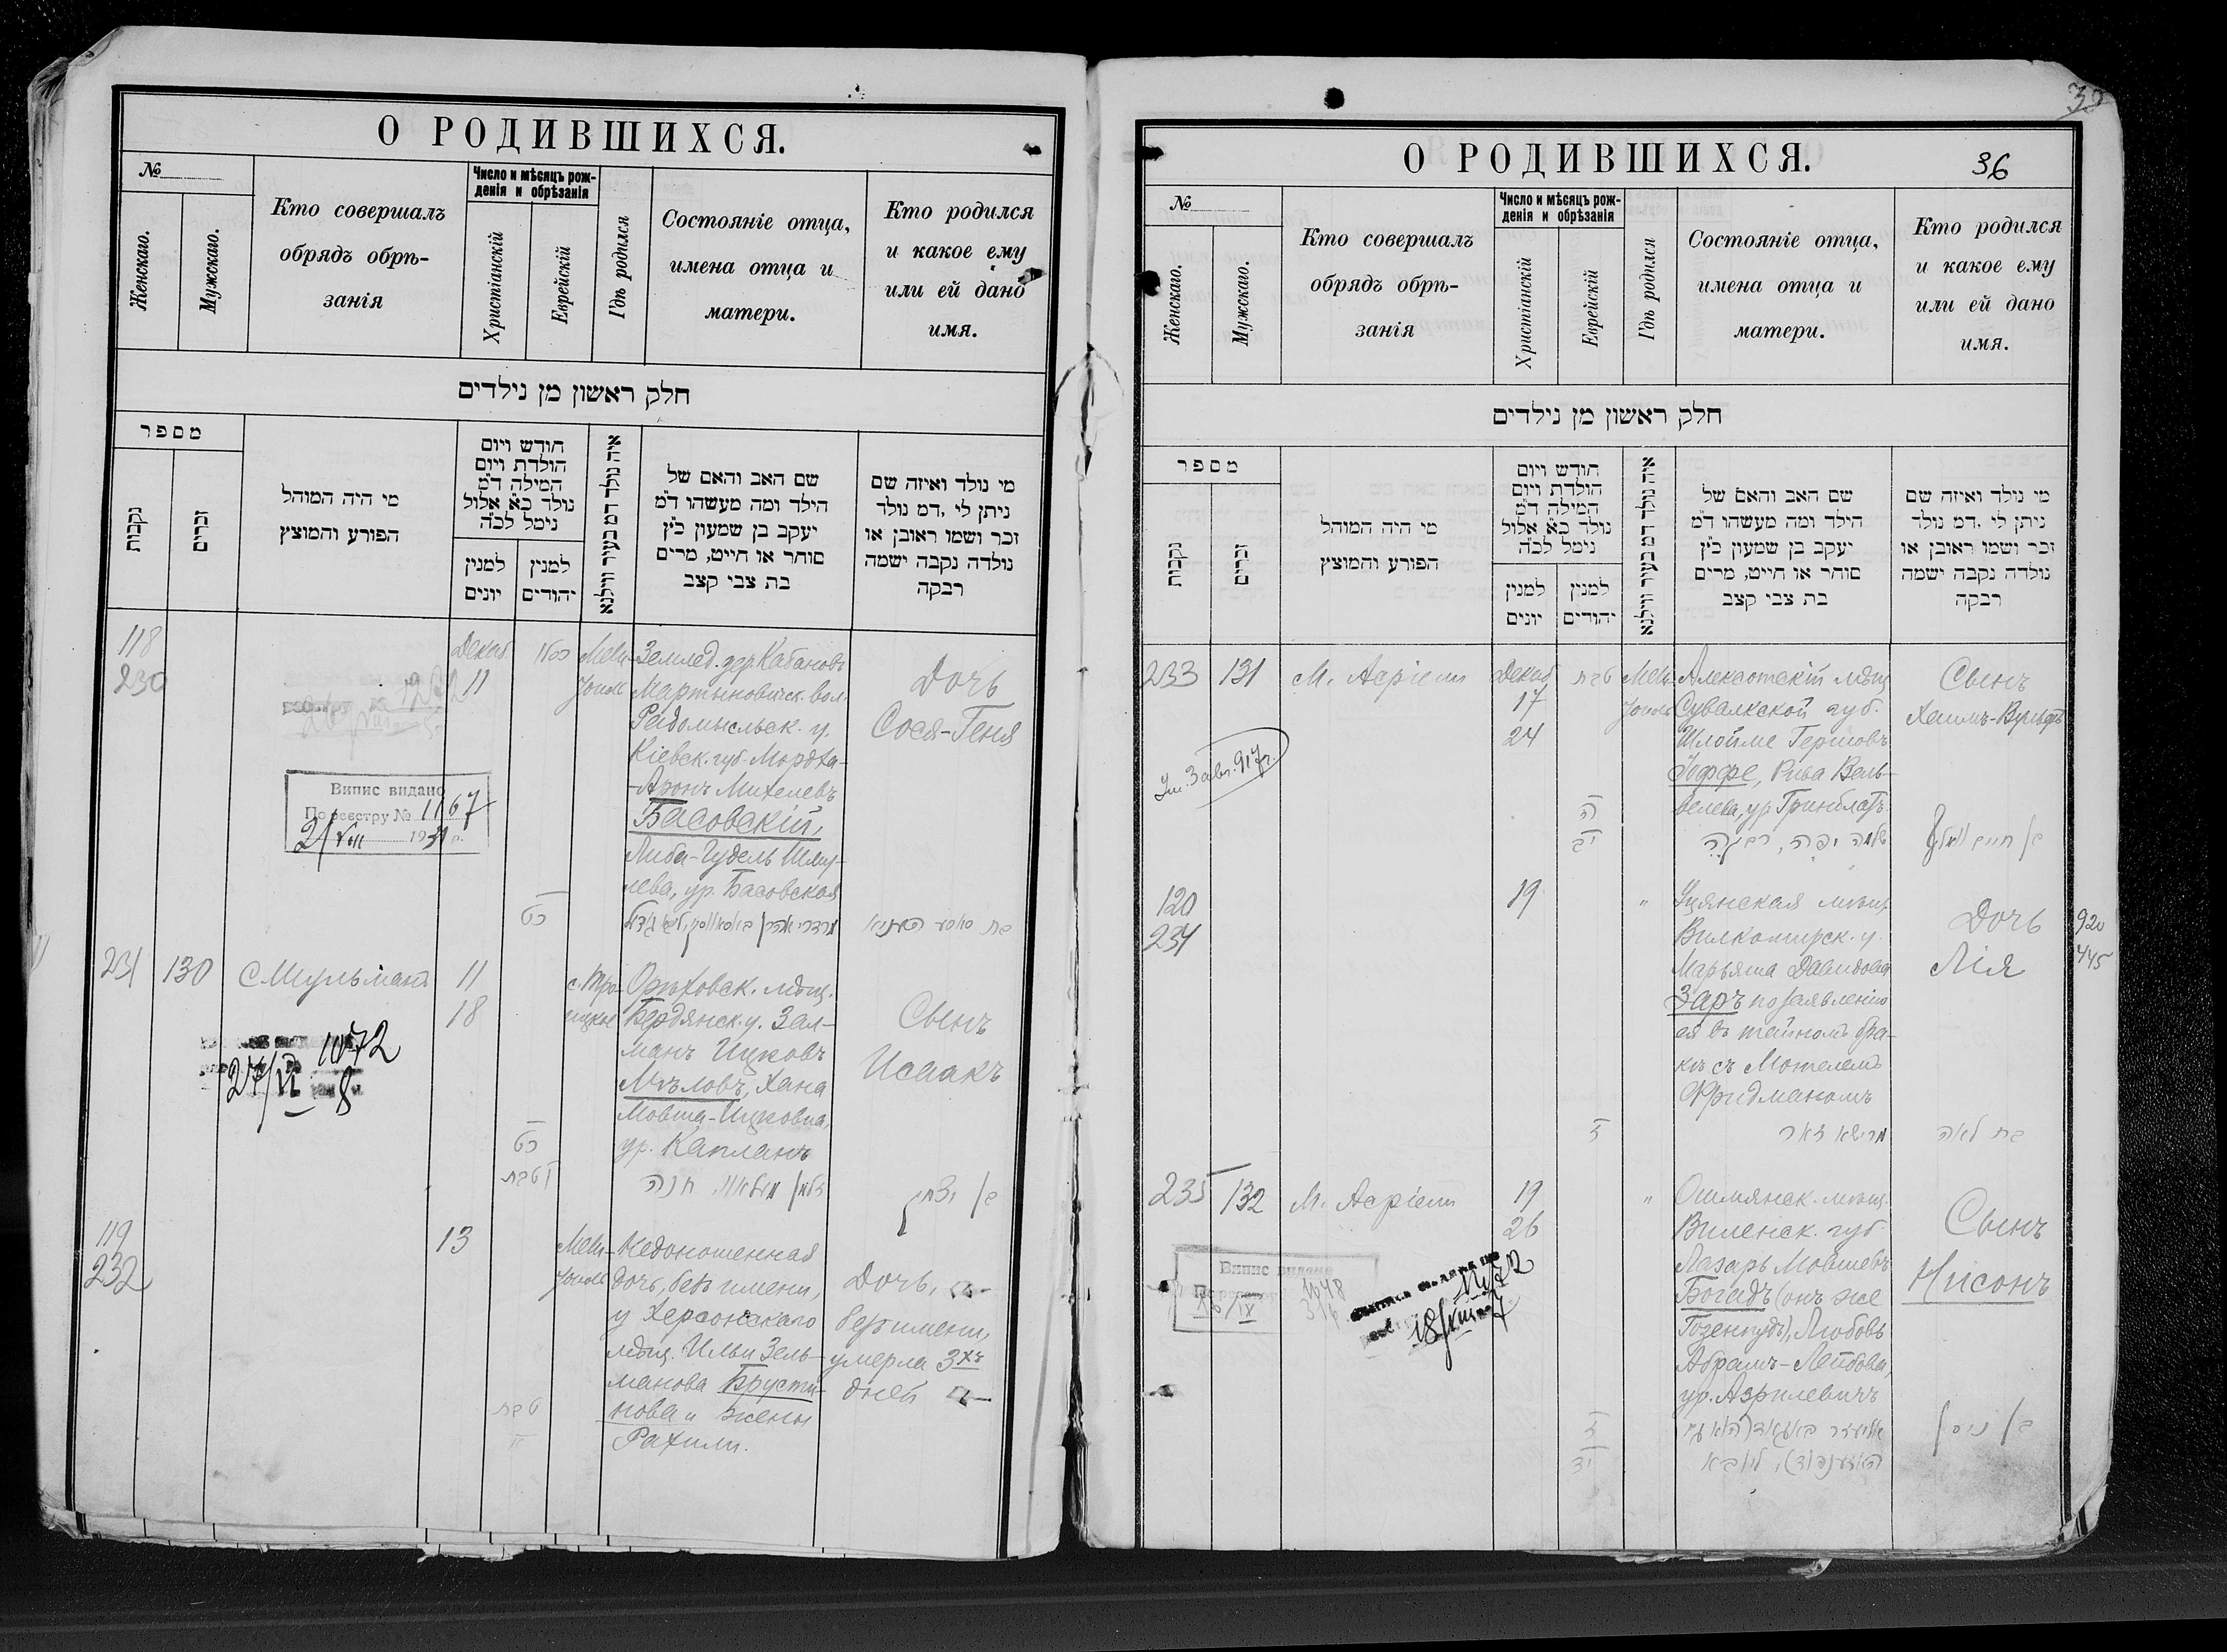 О РОДИВШИХСЯ.
№
Женскаго.
Мужскаго.
Кто совершалъ
обрядъ обрѣ-
занія
Число и мѣсяцъ рож-
денія и обрѣзанія
Христіанскій
Еврейскій
Гдѣ родился
Состояніе отца,
имена отца и
матери.
Кто родился
и какое ему
или ей дано
имя.
חלק ראשון מן נילדים
מספר
נקבות
זכרים
מי היה המוהל
הפורע והמוצץ
חודש ויום
הולדת ויום
המילה ד״מ
נולד כ״א אלול
נימל לכ״ה
למנין
יונים
למנין
יהודים
איה נולד דמ בעיר ווילנא
שם האב והאם של
הילד ומה מעשהו ד״מ
יעקב בן שמעון כ״ץ
סוחר או חייט, מרים
בת צבי קצב
מי נולד ואיזה שם
ניתן לי ,דמ נולד
זכר ושמו ראובן או
נולדה נקבה ישמה
רבקה
118
230
Декаб.
11
כסלו
כט
Мели-
тополь
Землед. дер. Кабановъ
Мартыновичск. вол.
Радомысльск. у.
Кіевск. губ. Мордха-
-Аронъ Михелевъ
Басовскій,
Либа-Гудель Шму-
лева, ур. Басовская
Дочь
Сося-Геня
Випис видано
По реєстру № 1167
21/VIII 1931 р.
231
130
С. Шульманъ
11
18
כט
טבת
Орѣховск. мѣщ.
Бердянск. у. Зал-
манъ Ицковъ
Мѣловъ, Хана
Мовша-Ицковна,
ур. Капланъ
זלמן
חנה
Сынъ
Исаакъ
בן יצחק
1072
27/VI
119
232
13
טבת
Мели-
тополь
Недоношенная
дочь, безъ имени,
у Херсонскаго
мѣщ. Ильи Зель-
манова Брусти-
нова и жены
Рахили.
Дочь,
безъ имени,
умерла 3хъ
дней
О РОДИВШИХСЯ.
36
№
Женскаго.
Мужскаго.
Кто совершалъ
обрядъ обрѣ-
занія
Число и мѣсяцъ рож-
денія и обрѣзанія
Христіанскій
Еврейскій
Гдѣ родился
Состояніе отца,
имена отца и
матери.
Кто родился
и какое ему
или ей дано
имя.
חלק ראשון מן נילדים
מספר
נקבות
זכרים
מי היה המוהל
הפורע והמוצץ
חודש ויום
הולדת ויום
המילה ד״מ
נולד כ״א אלול
נימל לכ״ה
למנין
יונים
למנין
יהודים
איה נולד דמ בעיר ווילנא
שם האב והאם של
הילד ומה מעשהו ד״מ
יעקב בן שמעון כ״ץ
סוחר או חייט, מרים
בת צבי קצב
מי נולד ואיזה שם
ניתן לי ,דמ נולד
זכר ושמו ראובן או
נולדה נקבה ישמה
רבקה
233
131
М. Асріели
Декаб
17
24
טבת
ה
יב
Мели-
тополь
Алексотскій мѣщ
Сувалкской губ.
Шлойме Гершовъ
Іоффе, Рива Вель-
велева, ур Гринблатъ
שלמה יפה,
Сынъ
Хаимъ-Вульфъ
בן חיים
Ум. 3 авг. 917 г.
120
234
19
ז
"
Уцянская мѣщ.
Вилкомирск. у.
Марьяша Давидова
Заръ по заявленію
ея въ тайномъ бра-
кѣ съ Мотелемъ
Фридманомъ
זאר
Дочь
Лія
בת לאה
920
445
235
132
М. Асріели
19
26
ז
יד
"
Ошмянск. мѣщ.
Виленск. губ
Лазарь Мовшевъ
Богадъ (онъ же
Гозенпудъ), Любовь
Абрамъ-Лейбова,
ур. Азрилевичъ
Сынъ
Нисонъ
בן ניסן
Випис видано
1072
18/VIII 27